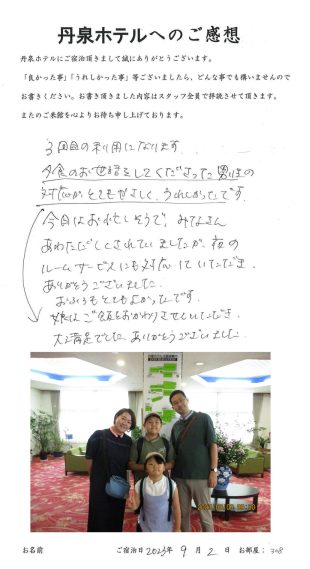 丹泉ホテルへのご感想
丹泉ホテルにご宿泊頂きまして誠にありがとうございます。
「良かった事」「うれしかった事」等ございましたら、どんな事でも構いませんので
お書きください。お書き頂きました内容はスタッフ全員で拝読させて頂きます。
またのご来館を心よりお待ち申し上げております。
3回目の利用になります。
夕食のお世話をしてくださった男性の
対応がとてもやさしく、うれしかったです。
今日はお忙しそうで、みなさん
あわただしくされていましたが、夜の
ルームサービスにも対応していただき、
ありがとうございました。
おふろもとてもよかったです。
娘はご飯をおかわりさせていただき、
大満足でした。ありがとうございました。
お名前 ご宿泊日 2023年 9月 2日 お部屋: 308